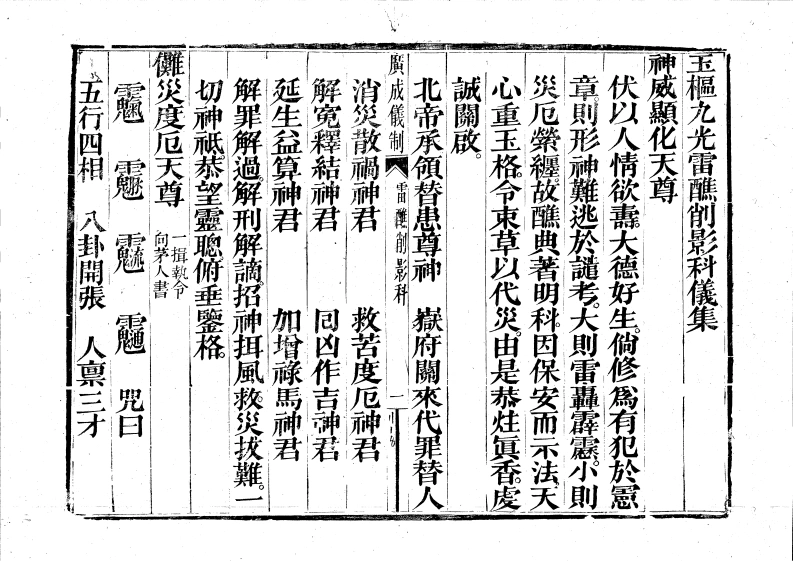 玉樞九光雷醮削影科儀集
神威顯化天尊
伏以人情欲壽。大德好生。倘修為有犯於憲
章。則形神難逃於譴考。大則雷轟霹靂。小則
災厄縈纏。故醮典著明科。因保安而示法。天
心重玉格。令束草以代災。由是恭炷眞香。虔
誠關啟。
北帝承領替患尊神 嶽府關來代罪替人
廣成儀制 雷醮削影科 一
消災散禍神君 救苦度厄神君
解寃釋結神君 回凶作吉神君
延生益算神君 加增祿馬神君
解罪解過。解刑解謫。招神揖風。救災拔難。一
切神祇。恭望靈聰。俯垂鑒格。
儺災度厄天尊 一揖執令
向茅人書
咒曰
五行四相 八卦開張 人禀三才